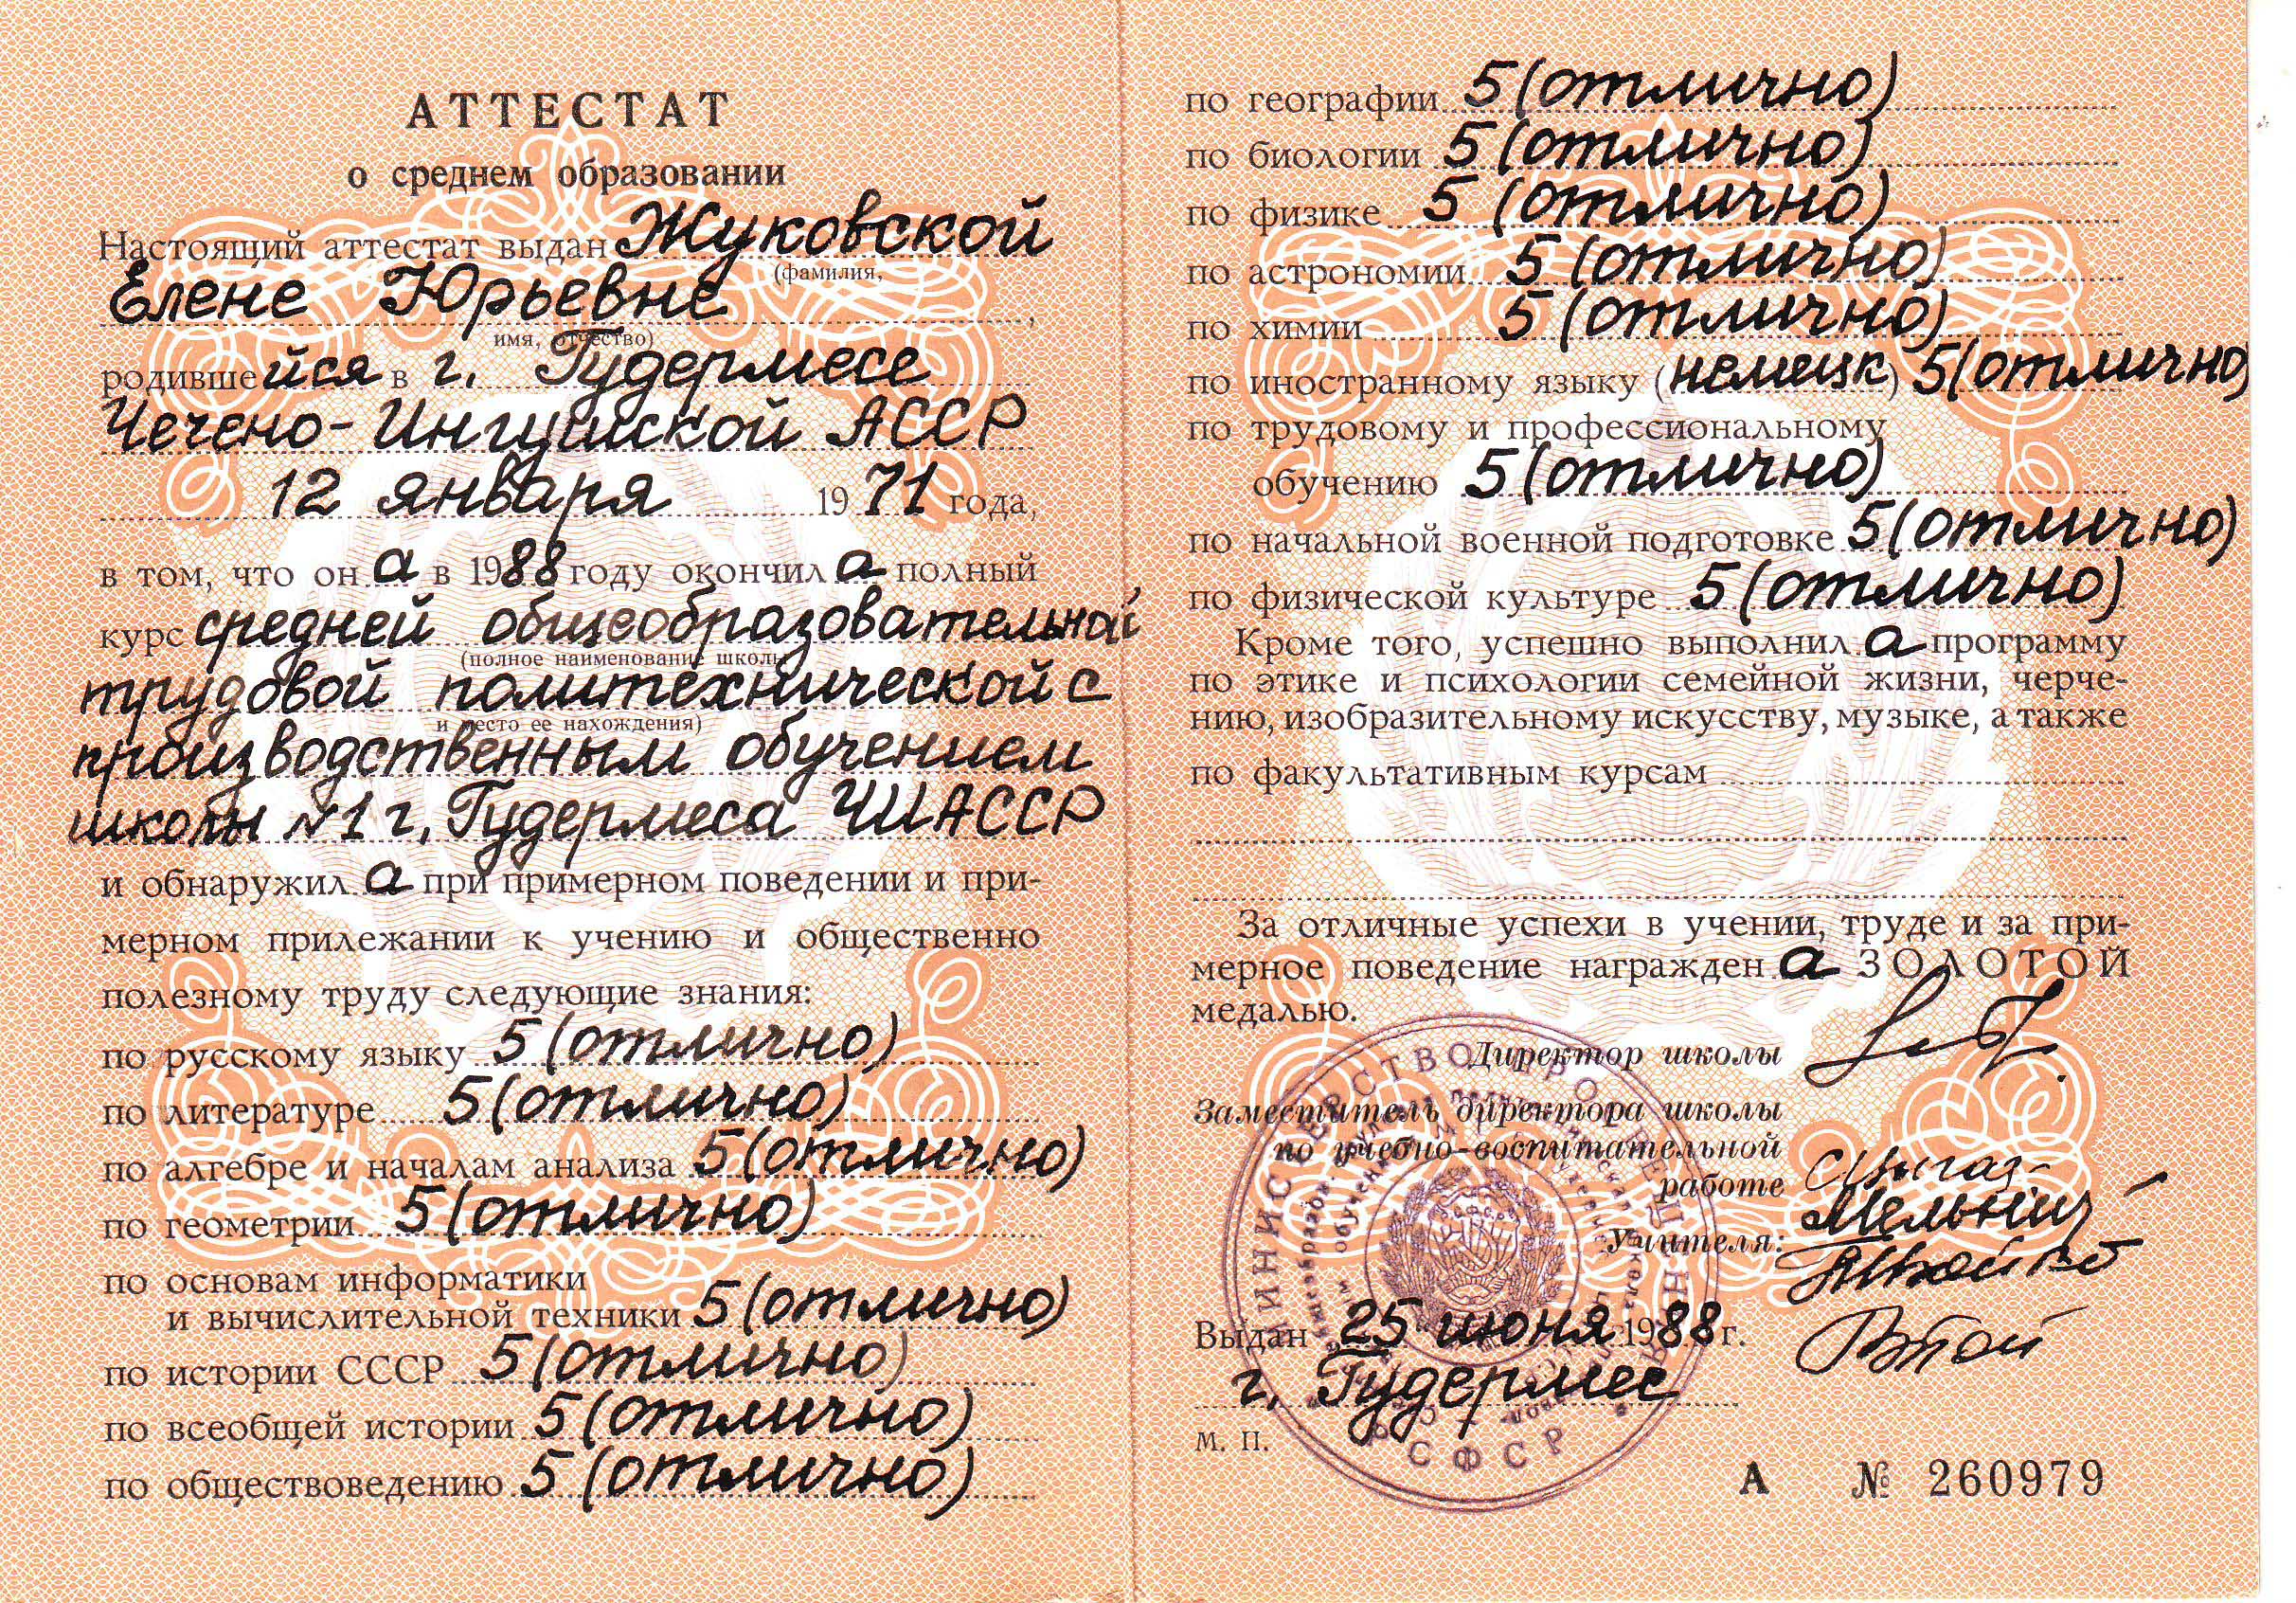 АТТЕСТАТ
о среднем образовании
Настоящий аттестат выдан Жуковской
(фамилия,
Елене Юрьевне,
имя, отчество)
родившейся в г. Гудермесе
Чечено-Ингушской АССР
12 января 1971 года,
в том, что он а в 1988 году окончил а полный
курс средней общеобразовательной
(полное наименование школы
трудовой политехнической с
и место ее нахождения)
производственным обучением
школы №1 г. Гудермеса ЧИАССР
и обнаружил а при примерном поведении и при-
мерном прилежании к учению и общественно
полезному труду следующие знания:
по русскому языку 5 (отлично)
по литературе 5 (отлично)
по алгебре и началам анализа 5 (отлично)
по геометрии 5 (отлично)
по основам информатики
и вычислительной техники 5 (отлично)
по истории СССР 5 (отлично)
по всеобщей истории 5 (отлично)
по обществоведению 5 (отлично)
по географии 5 (отлично)
по биологии 5 (отлично)
по физике 5 (отлично)
по астрономии 5 (отлично)
по химии 5 (отлично)
по иностранному языку (немецк) 5 (отлично)
по трудовому и профессиональному
обучению 5 (отлично)
по начальной военной подготовке 5 (отлично)
по физической культуре 5 (отлично)
Кроме того, успешно выполнил а программу
по этике и психологии семейной жизни, черче-
нию, изобразительному искусству, музыке, а также
по факультативным курсам
За отличные успехи в учении, труде и за при-
мерное поведение награжден а ЗОЛОТОЙ
медалью.
Директор школы
Заместитель директора школы
по учебно-воспитательной
работе
Учителя:
Выдан 25 июня 1988 г.
г. Гудермес
М. П.
А № 260979
МИНИСТЕРСТВО ПРОСВЕЩЕНИЯ
РСФСР